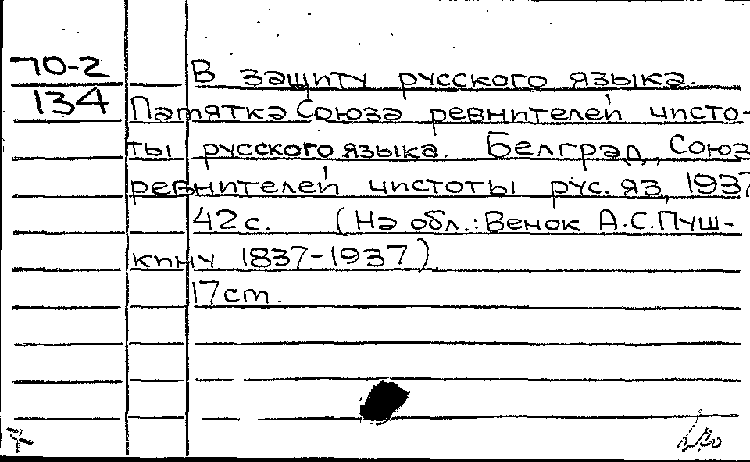 70-2 В защиту русского языка.
134 Памятка Союза ревнителей чисто-
ты русского языка. Белград, Союз
ревнителей чистоты рус. яз, 1937
42с. (На обл.: Венок А.С.Пуш-
кину 1837-1937)
17cm.